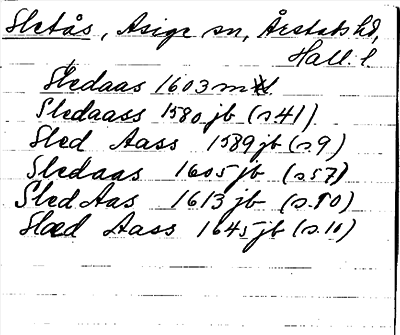 Sletås, Asige sn, Årstads hd,
Hall. l.
Sledaas 1603 m
Sledaass 1580 jb (s 41)
Sled Aass 1589 jb (s. 9)
Sledaas 1605 jb (s 57)
Sled Aas 1613 jb (s. 10)
Slæd Aass 1645 jb (s. 10)